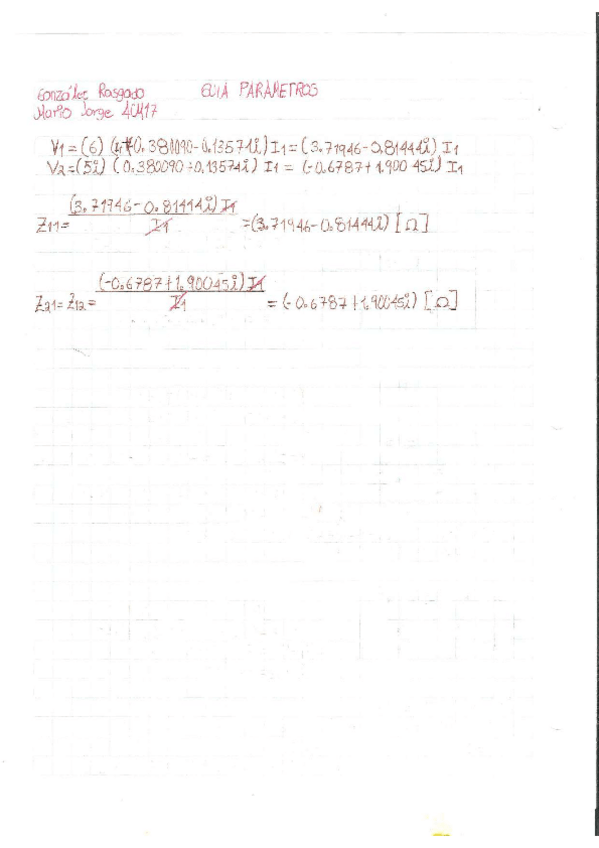 González Rasgado GUIA PARAMETROS
Mario Jorge 4CM17
V1=(6)(1-0.380090-0.13574i)I1=(3.71946-0.81444i)I1
V2=(5i)(0.380090+0.13574i)I1=(-0.6787+1.90045i)I1
(3.71946-0.81444i)I1
Z11= I1 =(3.71946-0.81444i)[Ω]
(-0.6787+1.90045i)I1
Z21=Z12= I1 =(-0.6787+1.90045i)[Ω]